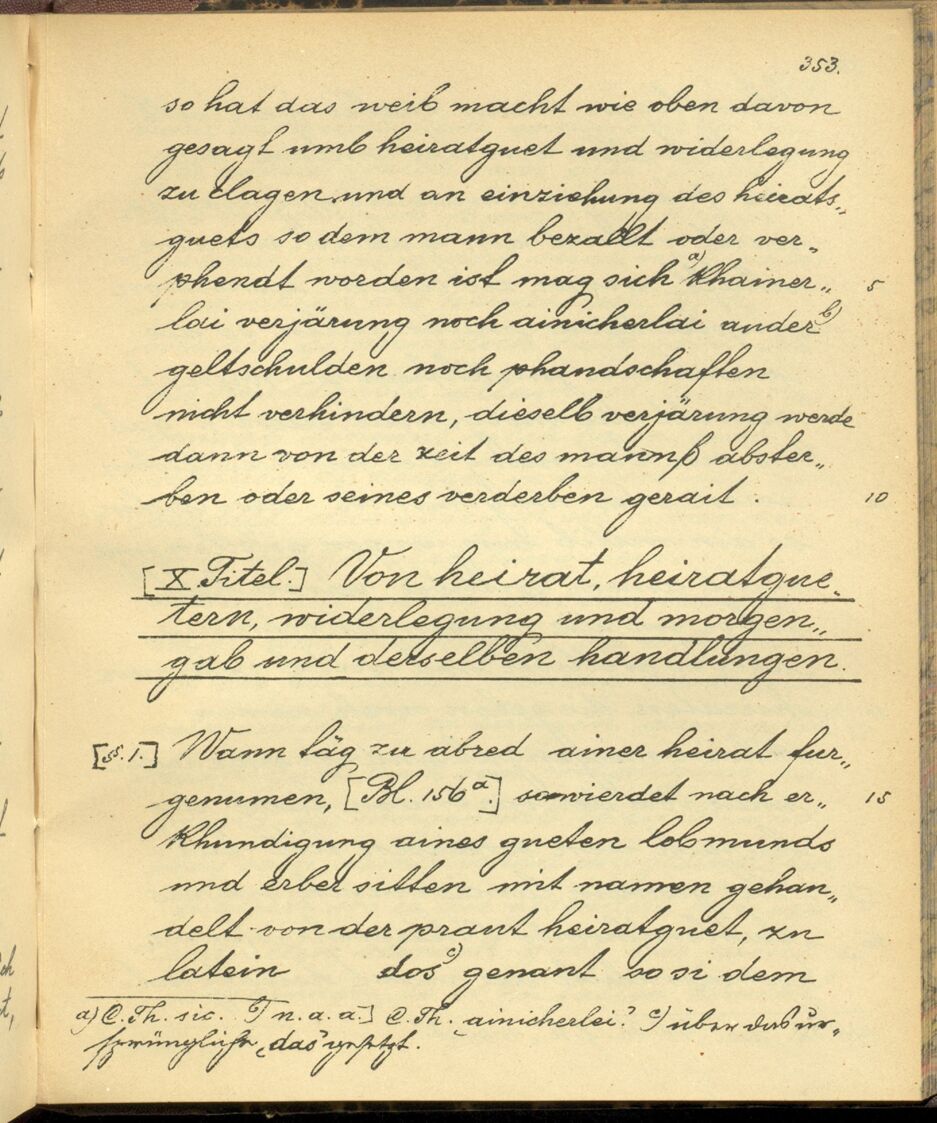 353.
so hat das weib macht wie oben davon
gesagt umb heiratguet und widerlegung
zu clagen und an einziehung des heirats„
guets so dem mann bezallt oder ver„
phendt worden ist mag sich a) khainer„ 5
lai verjärung noch ainicherlai ander b)
geltschulden noch phandschaften
nicht verhindern, dieselb verjärung werde
dann von der zeit des mannß abster„
ben oder seines verderben gerait . 10
[X. Titel.] Von heirat, heiratgue„
tern, widerlegung und morgen„
gab und derselben handlungen.
[§. 1.] Wann täg zu abred ainer heirat fur„
genumen, [Bl. 156 a.] so wierdet nach er„ 15
khundigung aines gueten lobmunds
und erber sitten mit namen gehan„
delt von der praut heiratguet, zu
latein dos c) genant so si dem
a) C. Th. sic. b) n. a. a.] C. Th. „ainicherlei? c) über das ur„
sprüngliche „das" gesetzt.